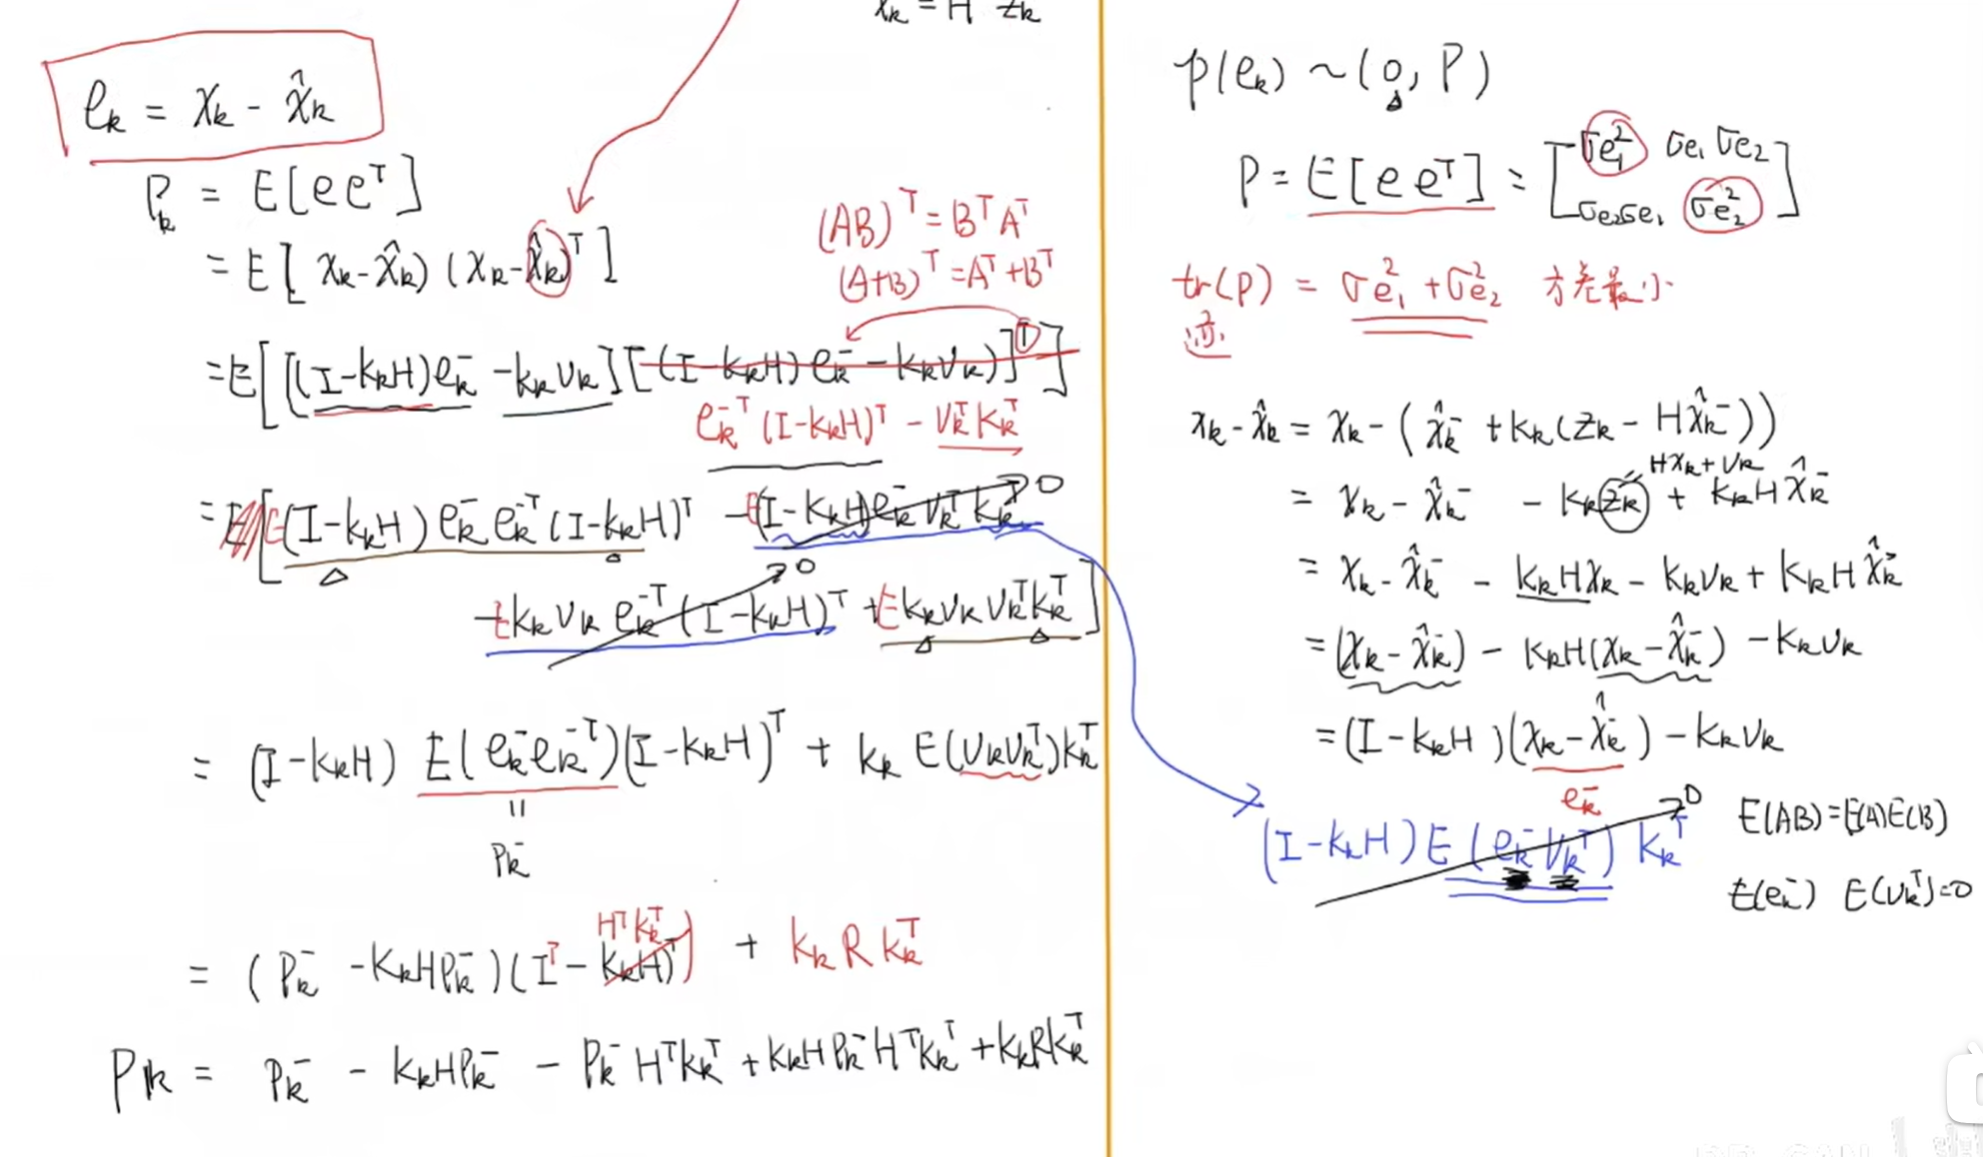 x̂ₖ = H⁻ zₖ
eₖ = xₖ - x̂ₖ
Pₖ = E[e eᵀ]
= E[ xₖ-x̂ₖ) (xₖ-x̂ₖ)ᵀ ]
(AB)ᵀ = BᵀAᵀ
(A+B)ᵀ = Aᵀ+Bᵀ
= E[[(I-kₖH)eₖ⁻ - kₖvₖ][(I-kₖH)eₖ⁻ - kₖvₖ)]ᵀ]
eₖ⁻ᵀ(I-kₖH)ᵀ - vₖᵀKₖᵀ
= E[E(I-kₖH)eₖ⁻eₖ⁻ᵀ(I-kₖH)ᵀ - E(I-kₖH)eₖ⁻vₖᵀkₖᵀ → 0
- Ekₖvₖeₖ⁻ᵀ(I-kₖH)ᵀ → 0 + Ekₖvₖvₖᵀkₖᵀ]
= (I-kₖH) E(eₖ⁻eₖ⁻ᵀ)(I-kₖH)ᵀ + kₖ E(vₖvₖᵀ)kₖᵀ
=
Pₖ⁻
Hᵀkₖᵀ
= (Pₖ⁻ - KₖHPₖ⁻)(Iᵀ - kₖH)ᵀ) + kₖRkₖᵀ
Pₖ = Pₖ⁻ - kₖHPₖ⁻ - Pₖ⁻Hᵀkₖᵀ + kₖHPₖ⁻Hᵀkₖᵀ + kₖRkₖᵀ
p(eₖ) ~ (0, P)
P = E[e eᵀ] = [σe₁² σe₁σe₂
σe₂σe₁ σe₂²]
tr(P) = σe₁² + σe₂² 方差最小
迹
xₖ - x̂ₖ = xₖ - (x̂ₖ⁻ + kₖ(zₖ - Hx̂ₖ⁻))
Hxₖ + vₖ
= xₖ - x̂ₖ⁻ - kₖzₖ + kₖHx̂ₖ⁻
= xₖ - x̂ₖ⁻ - kₖHxₖ - kₖvₖ + kₖHx̂ₖ⁻
= (xₖ - x̂ₖ⁻) - kₖH(xₖ - x̂ₖ⁻) - kₖvₖ
= (I - kₖH)(xₖ - x̂ₖ⁻) - kₖvₖ
eₖ⁻
(I - kₖH)E(eₖ⁻vₖᵀ)kₖᵀ → 0
E(AB) = E(A)E(B)
E(eₖ⁻) E(vₖᵀ) = 0